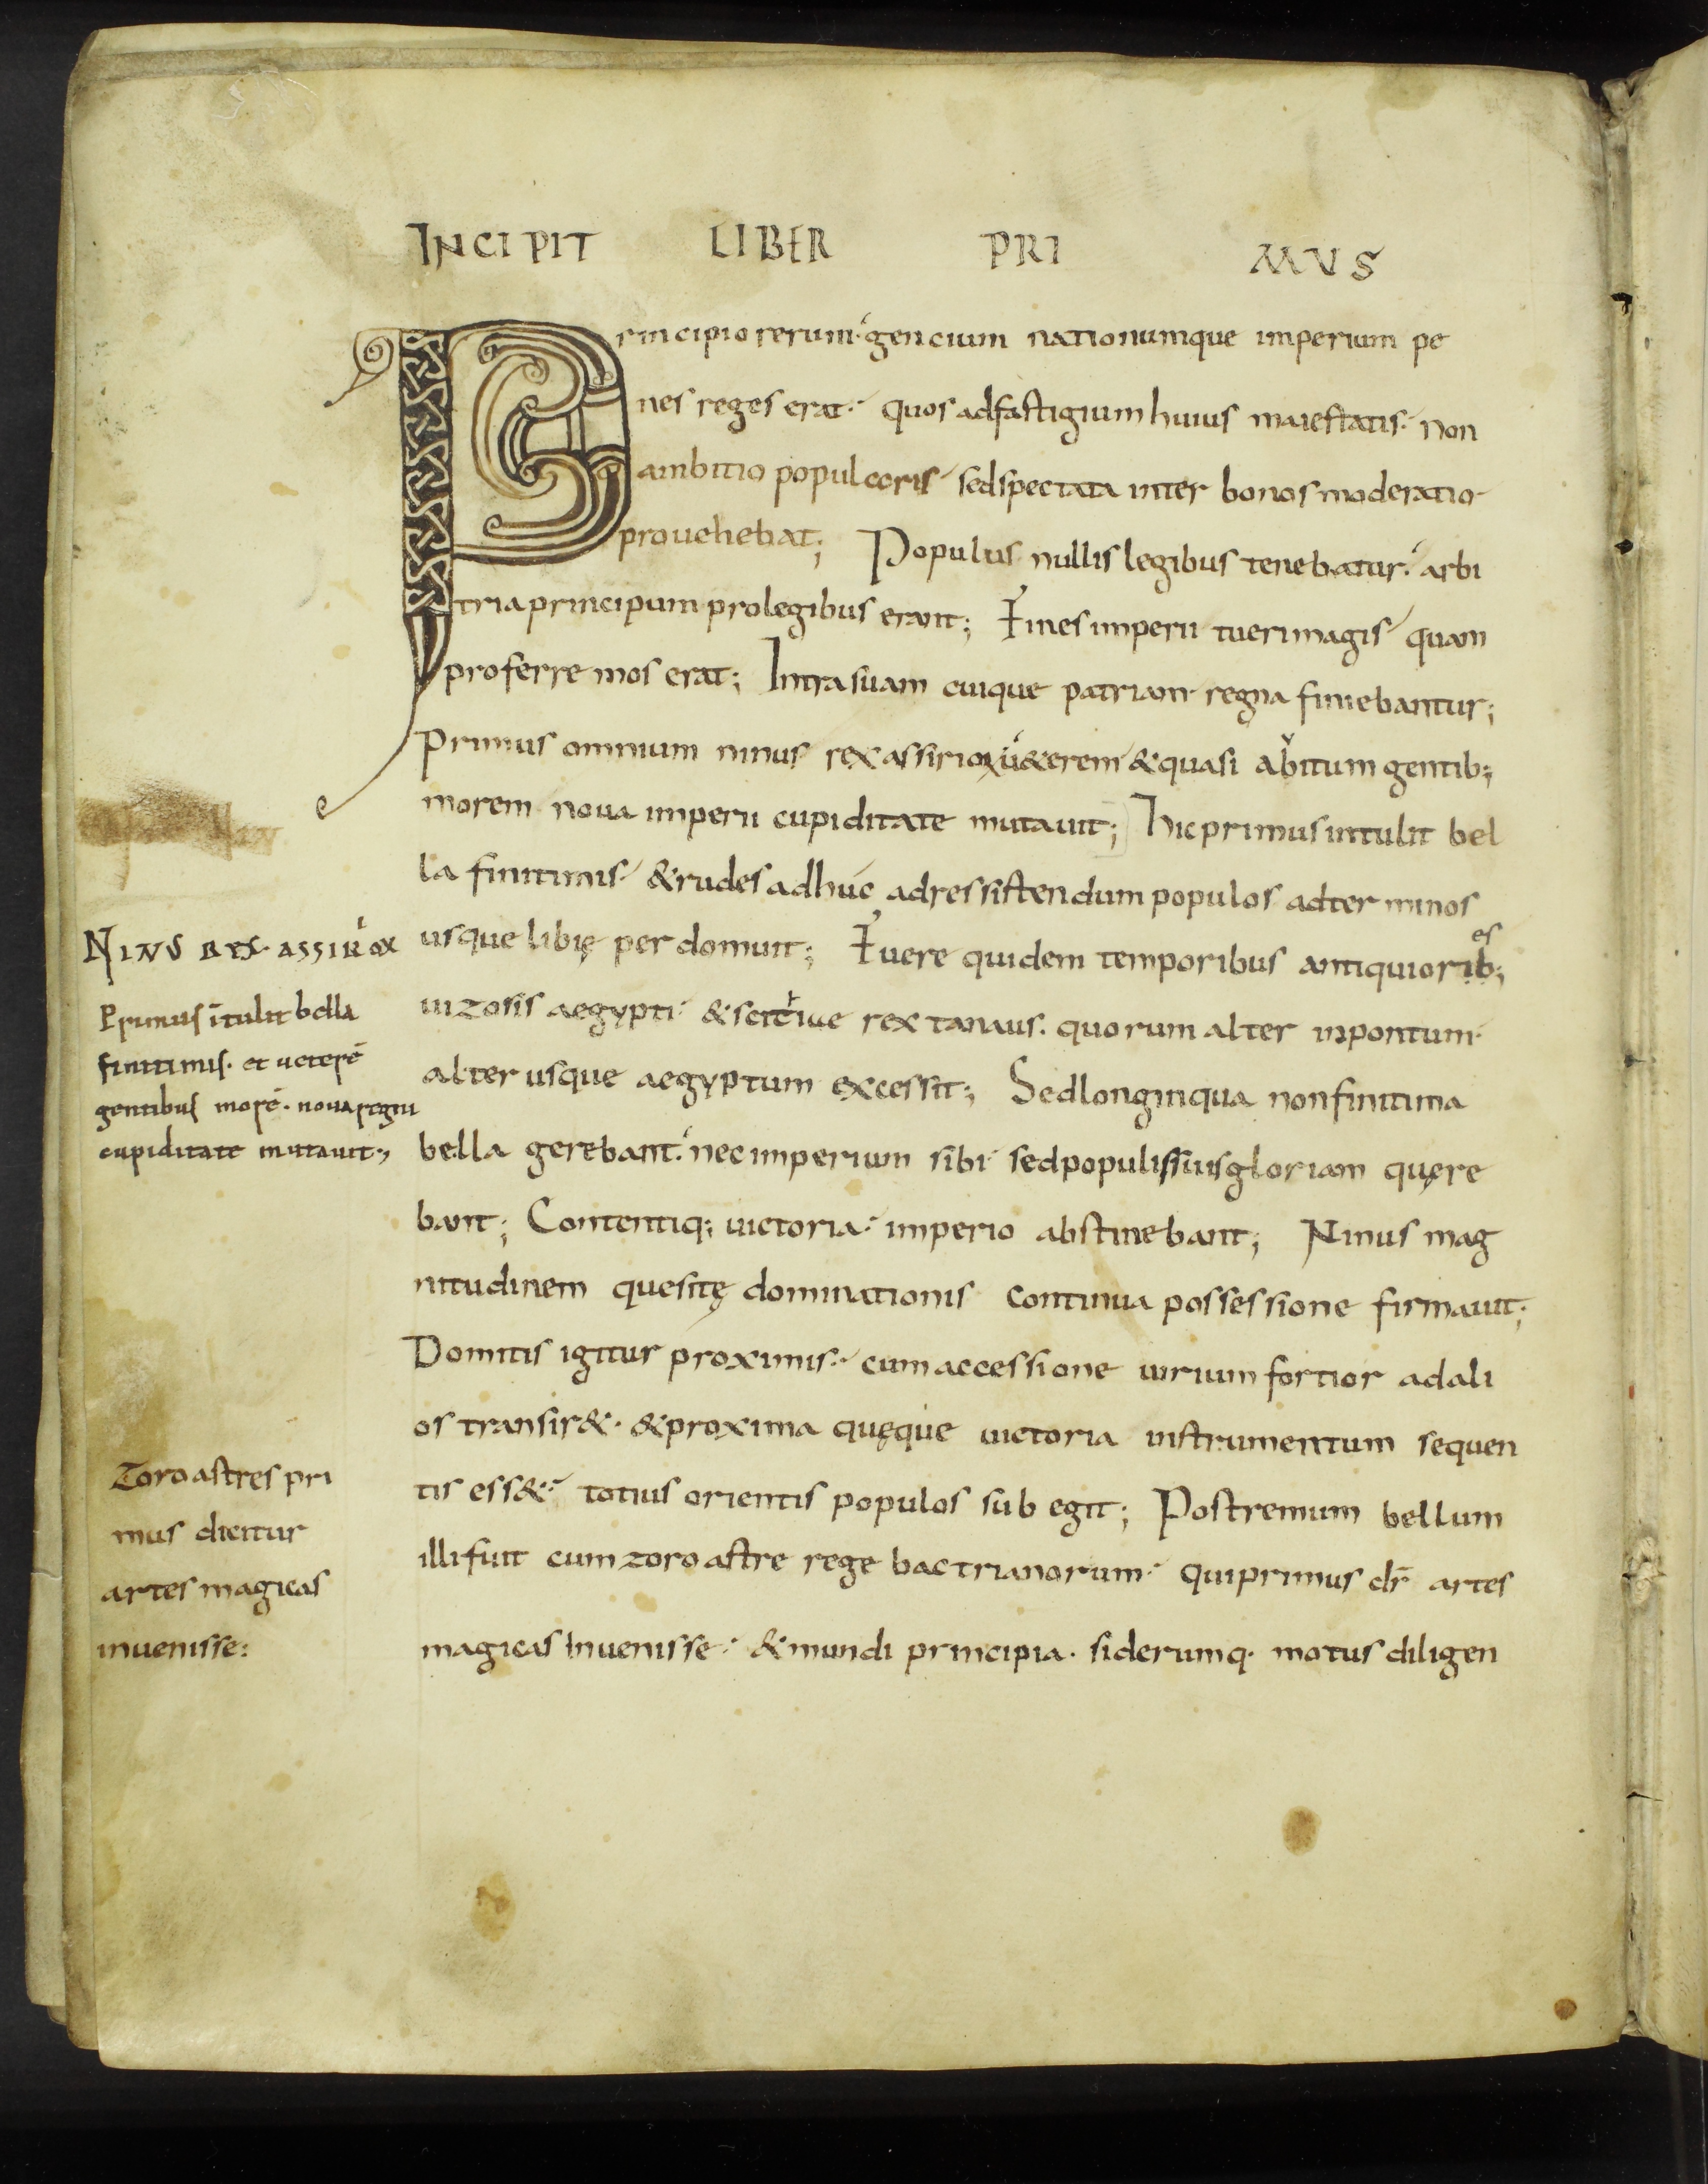 INCIPIT LIBER PRI MVS
Principio rerum gencium nationumque imperium pe
nes reges erat. quos ad fastigium huius maiestatis. non
ambitio popularis sed spectata inter bonos moderatio
prouehebat; Populus nullis legibus tenebatur. arbi
tria principum pro legibus erant; Fines imperii tueri magis quam
proferre mos erat; Intra suam cuique patriam regna finiebantur;
Primus omnium ninus rex assirioꝝ u&erem & quasi abitum gentib;
morem noua imperii cupiditate mutauit; Hic primus intulit bel
la finitimis & rudes adhuc ad ressistendum populos ad terminos
usque libię perdomuit; Fuere quidem temporibus antiquiorib;
es
uizosis aegypti & scitiue rex tanaus. quorum alter in pontum
alter usque aegyptum excessit; Sed longinqua non finitima
bella gerebant. nec imperium sibi sed populis suis gloriam quęre
bant; Contentiq; uictoria imperio abstinebant; Ninus mag
nitudinem quesitę dominationis continua possessione firmauit;
Domitis igitur proximis. cum accessione uirium fortior ad ali
os transir&. & proxima quęque uictoria instrumentum sequen
tis ess& totius orientis populos subegit; Postremum bellum
illi fuit cum zoroastre rege bactrianorum. qui primus dr̄ artes
magicas inuenisse. & mundi principia. siderumq. motus diligen
NINUS REX ASSIRIOꝝ
Primus ītulit bella
finitimis. et ueterē
gentibus morē. noua regni
cupiditate mutauit;
Zoroastres pri
mus dicitur
artes magicas
inuenisse: